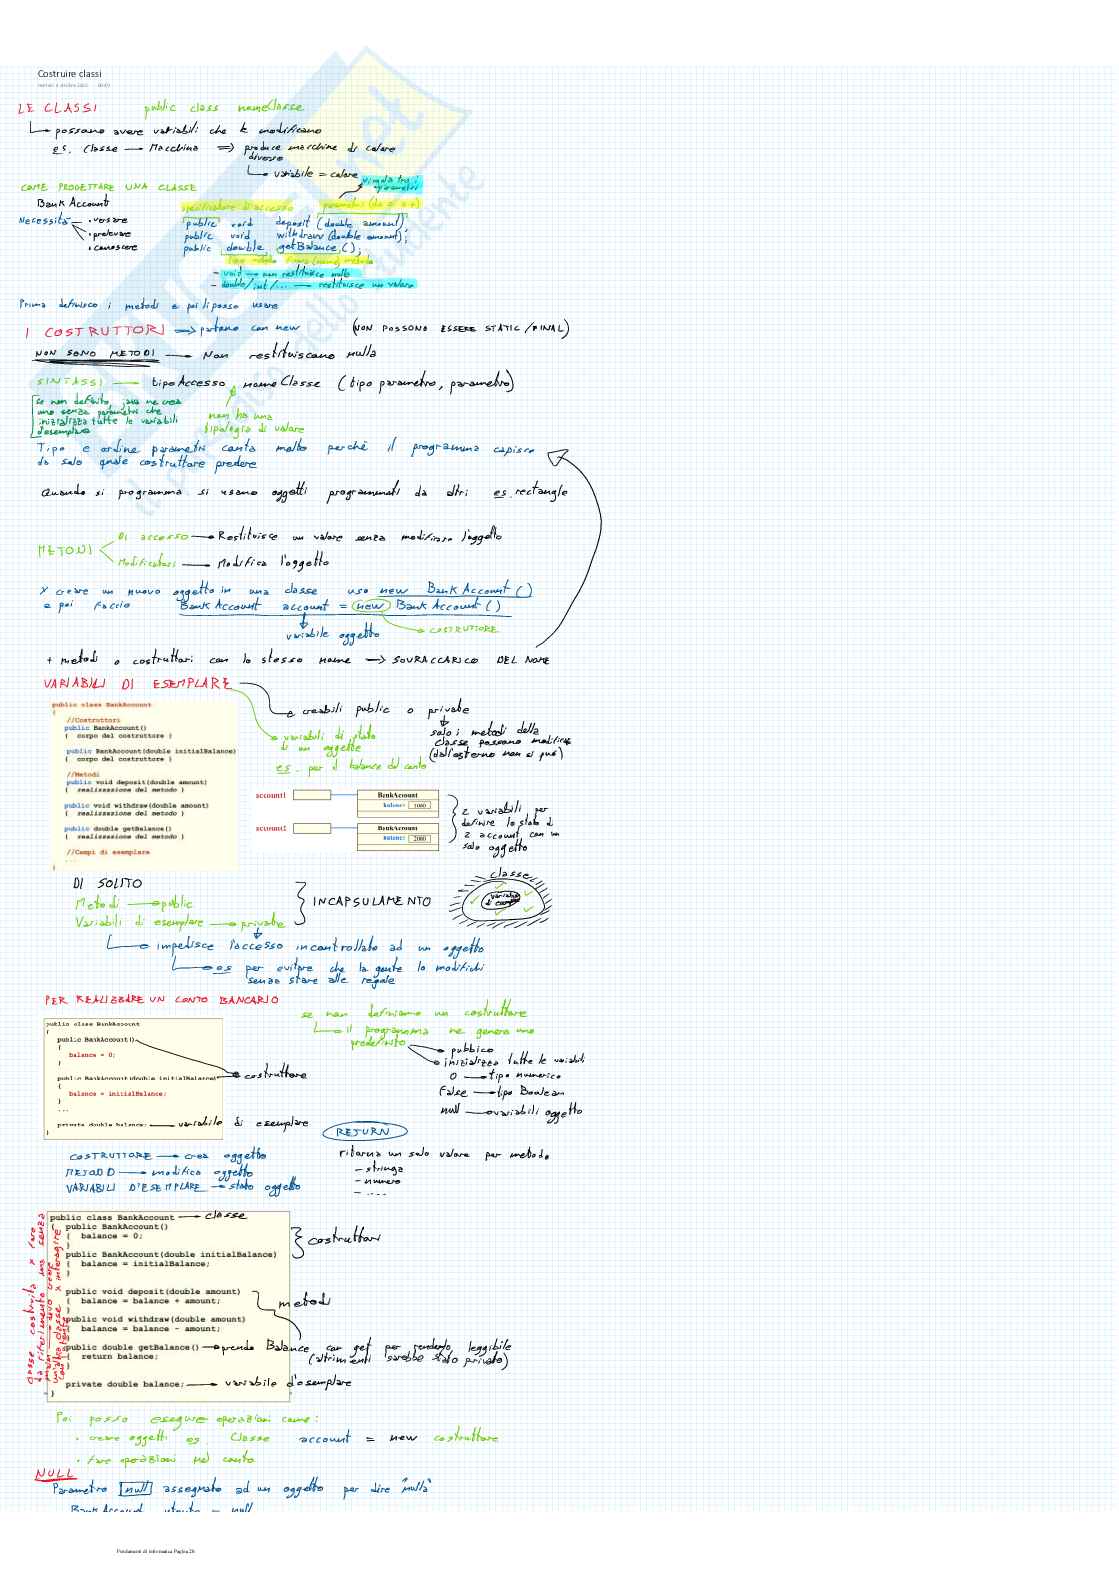 Costruire classi
LE CLASSI public class nomeClasse
possono avere variabili che le modificano
es. Classe Macchina => produce macchine di colore
diverso
variabile = colore
COME PROGETTARE UNA CLASSE
Bank Account
Necessità
• versare
• prelevare
• conoscere
specificatore di accesso
public void deposit (double amount);
public void withdraw (double amount);
public double getBalance ();
- void non restituisce nulla
- double/int/... restituisce un valore
Prima definisco i metodi e poi li posso usare
I COSTRUTTORI => partono con new (NON POSSONO ESSERE STATIC/FINAL)
NON SONO METODI Non restituiscono nulla
SINTASSI tipoAccesso nomeClasse (tipo parametro, parametro)
se non definito, java ne crea
uno senza parametri che
inizializza tutte le variabili
d'esemplare
non ha una
tipologia di valore
Tipo e ordine parametri conta molto perchè il programma capisce
da solo quale costruttore predere
Quando si programma si usano oggetti programmati da altri es. rectangle
METODI
Di accesso Restituisce un valore senza modificare l'oggetto
Modificatori Modifica l'oggetto
x creare un nuovo oggetto in una classe uso new BankAccount ()
e poi faccio BankAccount account = new BankAccount ()
variabile oggetto
COSTRUTTORE
+ metodi o costruttori con lo stesso nome -> SOVRACCARICO DEL NOME
VARIABILI DI ESEMPLARE
e creabili public o private
solo i metodi della
classe possono modificare
(dall'esterno non si può)
variabili di stato
di un oggetto
es. per il balance del conto
public class BankAccount
{
//Costruttori
public BankAccount()
{ corpo del costruttore }
public BankAccount(double initialBalance)
{ corpo del costruttore }
//Metodi
public void deposit(double amount)
{ realizzazione del metodo }
public void withdraw(double amount)
{ realizzazione del metodo }
public double getBalance()
{ realizzazione del metodo }
//Campi di esemplare
...
}
account1
BankAccount
balance: 1000
account2
BankAccount
balance: 2000
2 variabili per
definire lo stato di
2 account con un
solo oggetto
DI SOLITO
Metodi public
Variabili di esemplare private
INCAPSULAMENTO
classe
impedisce l'accesso incontrollato ad un oggetto
es per evitare che la gente lo modifichi
senza stare alle regole
PER REALIZZARE UN CONTO BANCARIO
se non definiamo un costruttore
il programma ne genera uno
predefinito
pubblico
inizializza tutte le variabili
0 tipo numerico
False tipo Boolean
null variabili oggetto
public class BankAccount
{
public BankAccount()
{
balance = 0;
}
public BankAccount(double initialBalance)
{
balance = initialBalance;
}
...
private double balance;
}
costruttore
variabile di esemplare
RETURN
ritorna un solo valore per metodo
- stringa
- numero
- ....
COSTRUTTORE crea oggetto
METODO modifica oggetto
VARIABILI D'ESEMPLARE stato oggetto
public class BankAccount classe
{ public BankAccount()
{ balance = 0;
}
public BankAccount(double initialBalance)
{ balance = initialBalance;
}
costruttori
public void deposit(double amount)
{ balance = balance + amount;
}
metodi
public void withdraw(double amount)
{ balance = balance - amount;
}
public double getBalance() rendo Balance con get per renderlo leggibile
{ return balance; (altrimenti sarebbe stato privato)
}
private double balance; variabile d'esemplare
}
Poi posso eseguire operazioni come:
• creare oggetti es Classe account = new costruttore
• fare operazioni nel conto
NULL
Parametro null assegnato ad un oggetto per dire "nulla"
BankAccount utente = null
Fondamenti di informatica Pagina 28